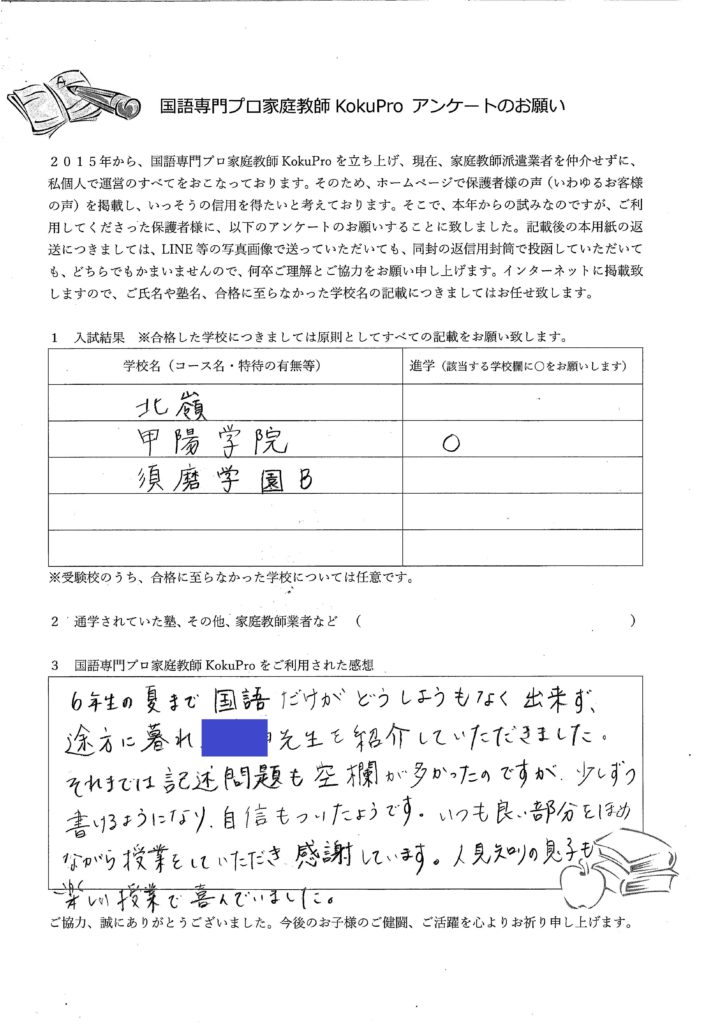 国語専門プロ家庭教師 KokuPro アンケートのお願い
２０１５年から、国語専門プロ家庭教師 KokuPro を立ち上げ、現在、家庭教師派遣業者を仲介せずに、
私個人で運営のすべてをおこなっております。そのため、ホームページで保護者様の声（いわゆるお客様
の声）を掲載し、いっそうの信用を得たいと考えております。そこで、本年からの試みなのですが、ご利
用してくださった保護者様に、以下のアンケートのお願いすることに致しました。記載後の本用紙の返
送につきましては、LINE 等の写真画像で送っていただいても、同封の返信用封筒で投函していただいて
も、どちらでもかまいませんので、何卒ご理解とご協力をお願い申し上げます。インターネットに掲載致
しますので、ご氏名や塾名、合格に至らなかった学校名の記載につきましてはお任せ致します。
１ 入試結果 ※合格した学校につきましては原則としてすべての記載をお願い致します。
学校名（コース名・特待の有無等） 進学（該当する学校欄に○をお願いします）
北嶺
甲陽学院 ○
須磨学園B
※受験校のうち、合格に至らなかった学校については任意です。
２ 通学されていた塾、その他、家庭教師業者など （ ）
３ 国語専門プロ家庭教師 KokuPro をご利用された感想
6年生の夏まで 国語だけが どうしようもなく 出来ず、
途方に暮れ 先生を紹介していただきました。
それまでは記述問題も空欄が多かったのですが、少しずつ
書けるようになり、自信もついたようです。いつも良い部分をほめ
ながら授業をしていただき 感謝しています。人見知りの息子も
楽しい授業で喜んでいました。
ご協力、誠にありがとうございました。今後のお子様のご健闘、ご活躍を心よりお祈り申し上げます。